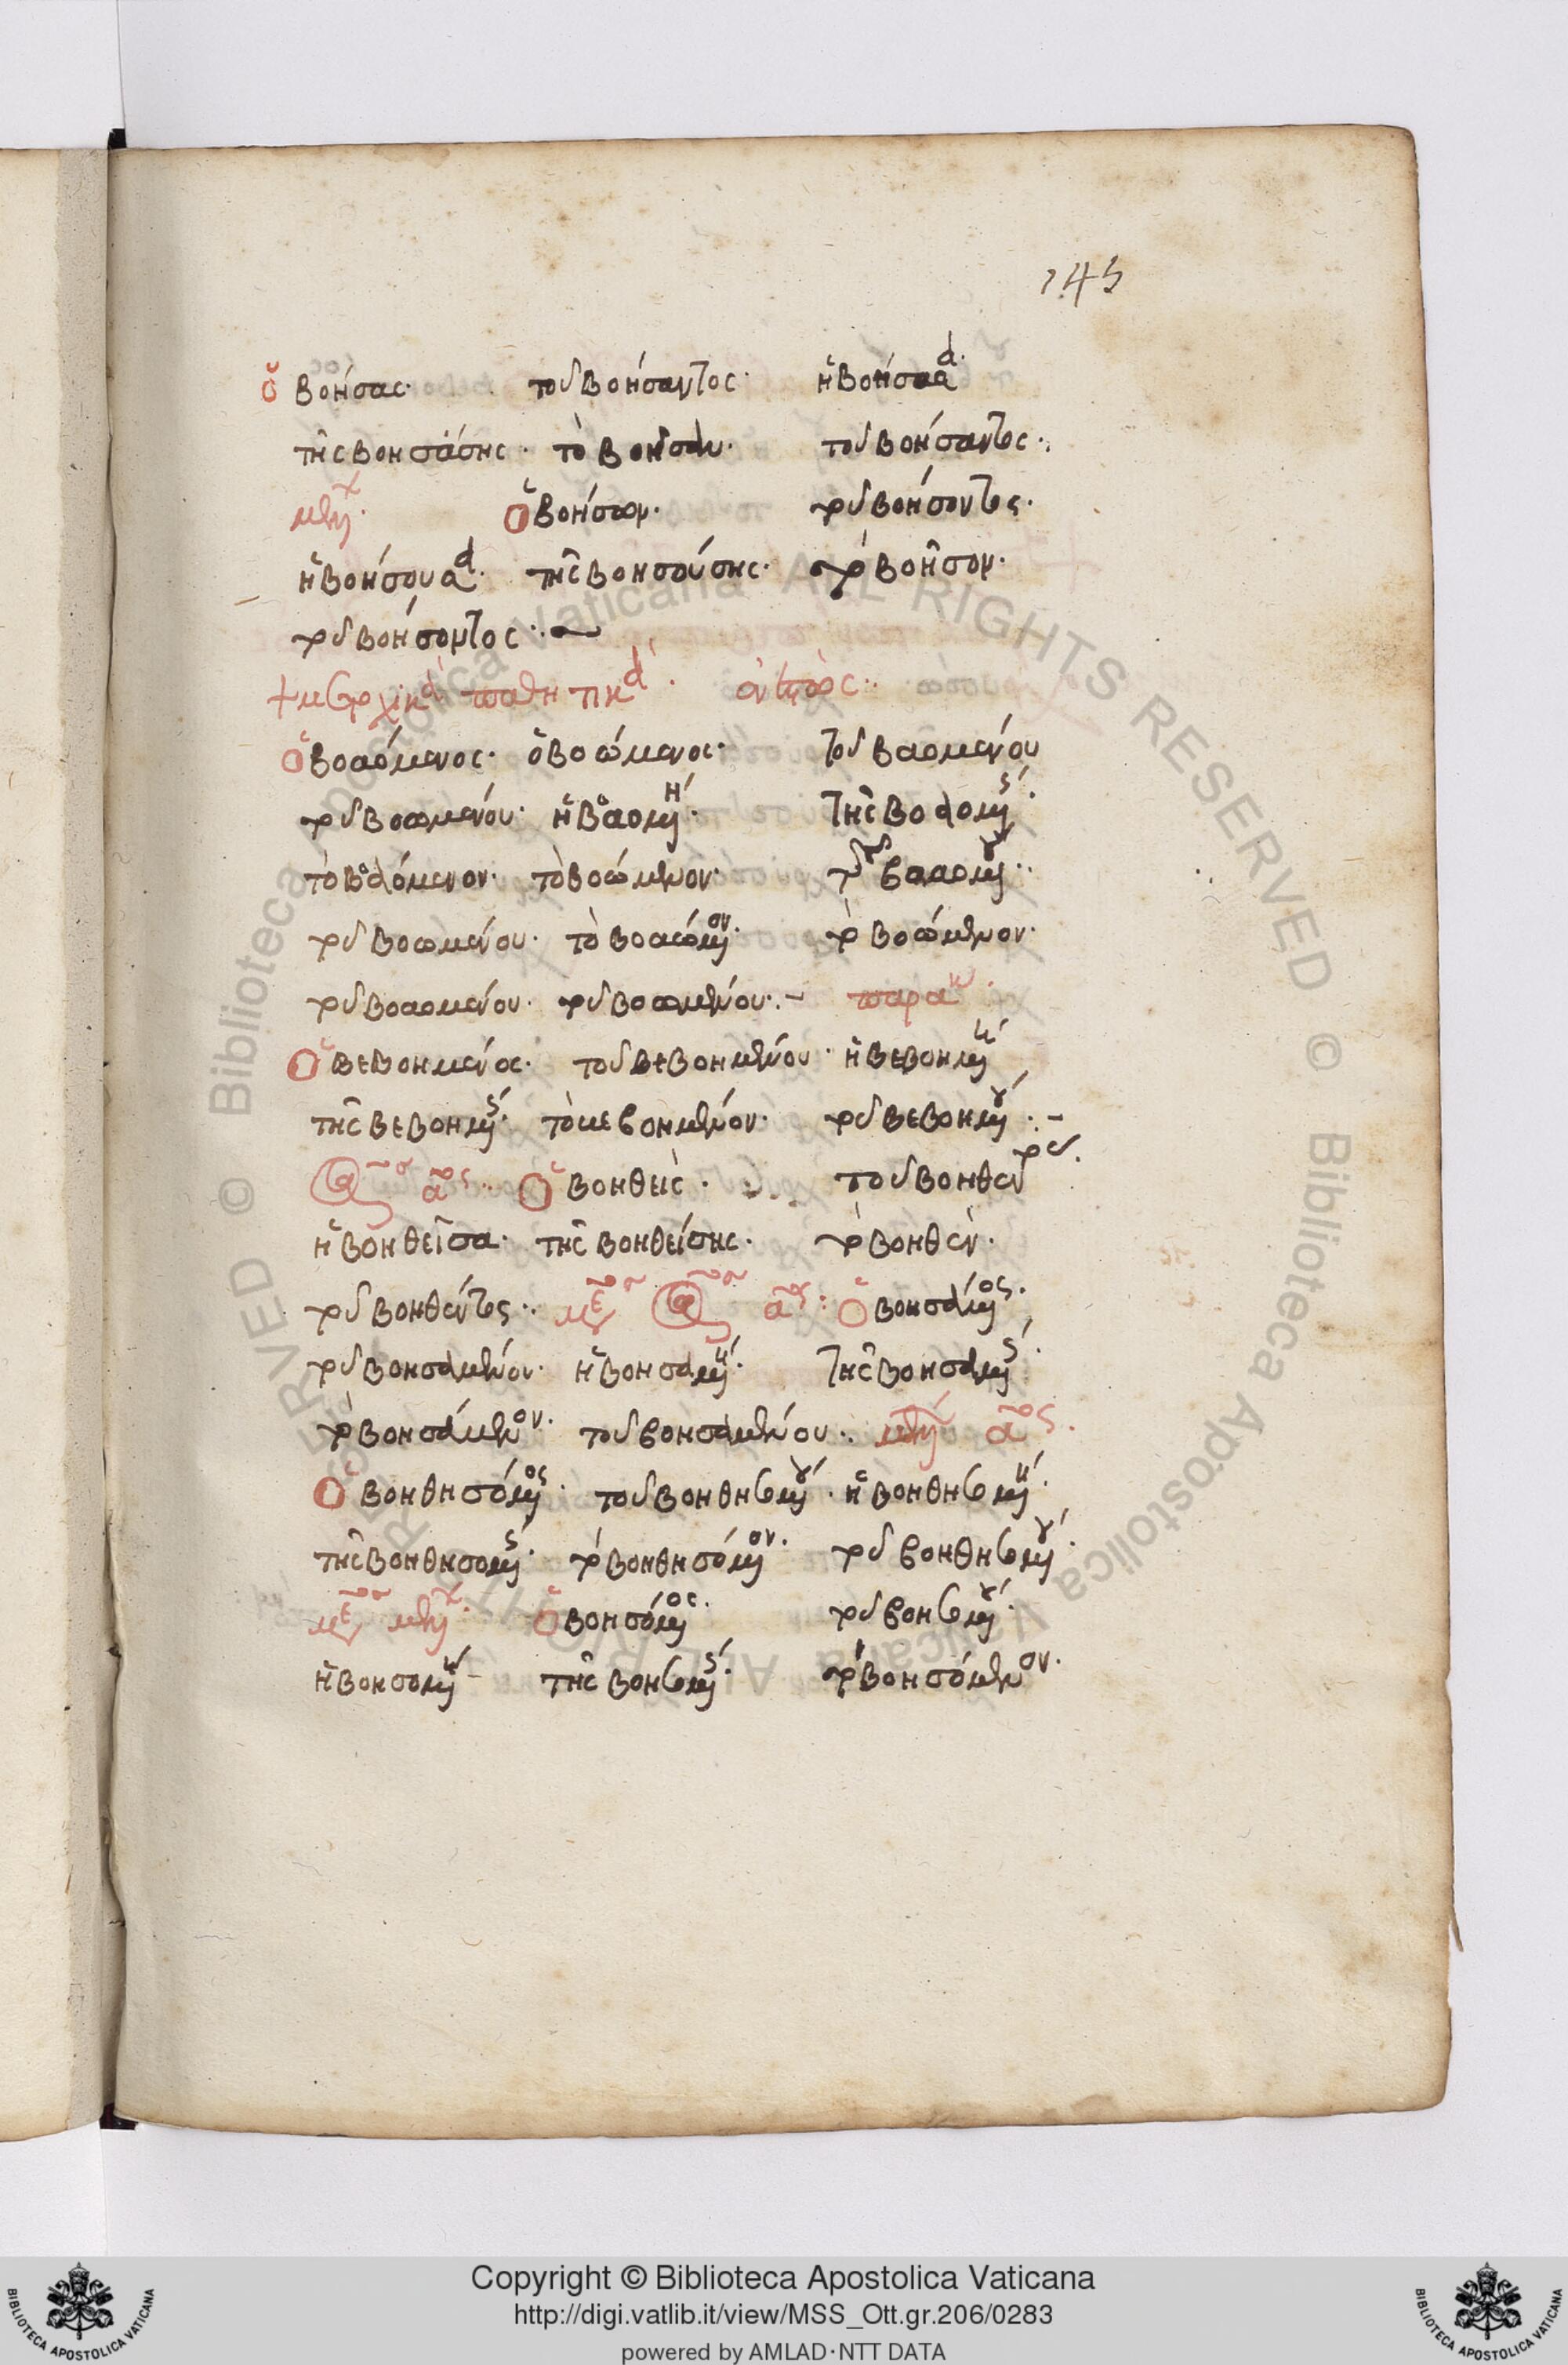 145
ὁ βοήσας· τοῦ βοήσαντος· ἡ βοήσασα·
τῆς βοησάσης· τὸ βοῆσαν· τοῦ βοήσαντος·
μέλλ· ὁ βοήσων· τοῦ βοήσοντος·
ἡ βοήσουσα· τῆς βοησούσης· τὸ βοῆσον·
τοῦ βοήσοντος·
+ μετοχικὰ παθητικά· ἐνεστὼς·
ὁ βοαόμενος· ὁ βοώμενος· τοῦ βαομένου
τοῦ βοωμένου· ἡ βοαομένη· τῆς βοαομένης·
τὸ βοαόμενον· τὸ βοώμενον·
τοῦ βοωμένου· τὸ βοαόμενον· τὸ βοώμενον·
τοῦ βοαομένου· τοῦ βοωμένου· παρακ·
ὁ βεβοημένος· τοῦ βεβοημένου· ἡ βεβοημένη
τῆς βεβοημένης· τὸ βεβοημένον· τοῦ βεβοημένου·
ὁ βοηθεὶς· τοῦ βοηθέντος·
ἡ βοηθεῖσα· τῆς βοηθείσης· τὸ βοηθὲν·
τοῦ βοηθέντος· ὁ βοησάμενος·
τοῦ βοησαμένου· ἡ βοησαμένη· τῆς βοησαμένης·
τὸ βοησάμενον· τοῦ βοησαμένου·
ὁ βοηθησόμενος· τοῦ βοηθησομένου· ἡ βοηθησομένη·
τῆς βοηθησομένης· τὸ βοηθησόμενον· τοῦ βοηθησομένου·
ὁ βοησόμενος· τοῦ βοησομένου·
ἡ βοησομένη τῆς βοησομένης· τὸ βοησόμενον·
Copyright © Biblioteca Apostolica Vaticana
http://digi.vatlib.it/view/MSS_Ott.gr.206/0283
powered by AMLAD·NTT DATA